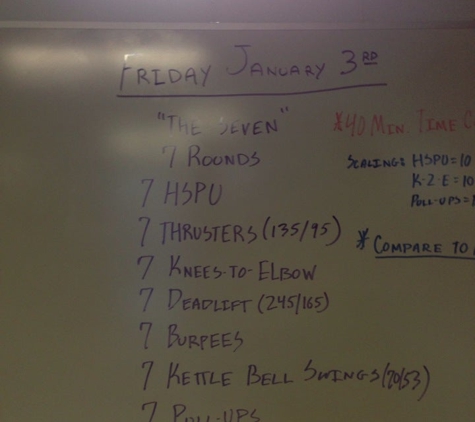 FRIDAY JANUARY 3RD
"THE SEVEN"
7 ROUNDS
7 HSPU
7 THRUSTERS (135/95)
7 KNEES-TO-ELBOW
7 DEADLIFT (245/165)
7 BURPEES
7 KETTLE BELL SWINGS (70/53)
7 PULL-UPS
*40 MIN. TIME C
SCALING: HSPU=10
K-2-E=10
PULL-UPS=1
* COMPARE TO